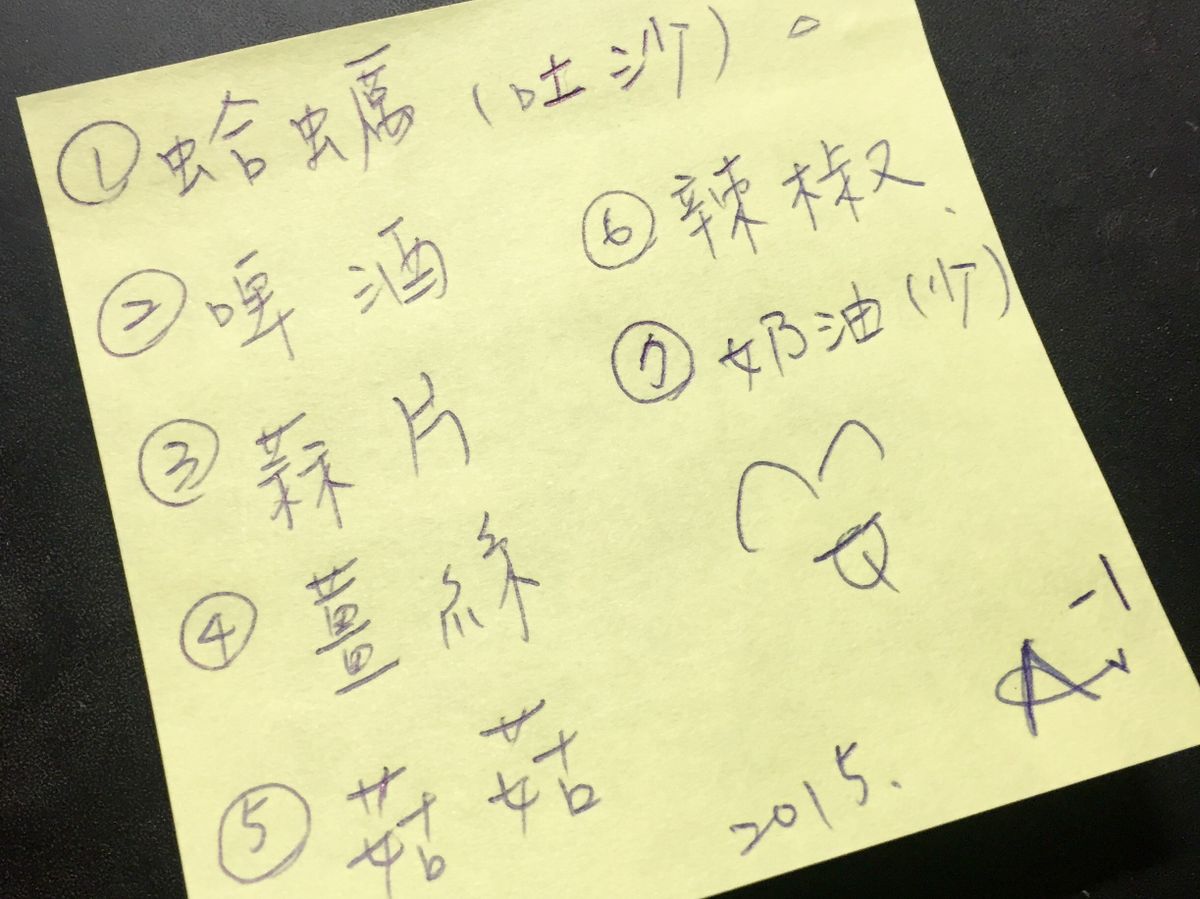 ①蛤蠣(吐沙)。
②啤酒
③蒜片
④薑絲
⑤菇菇
⑥辣椒.
⑦奶油(少)
2015.